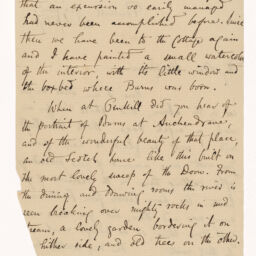 that an expression so easily managed
had never been accomplished before. Since
then we have been to the Cottage again
and I have painted a small watercolor
of the interior, with its little window and
the boxbed where Burns was born.
When at Penkill did you hear of
the portrait of Burns at Auchendrane,
and of the wonderful beauty of that place,
an old Scotch house like this built on
the most lovely sweep of the Doon. From
the dining and drawing rooms the river is
seen breaking over mighty rocks in mid
stream, a lovely garden bordering it on
hither side, and old trees on the other.